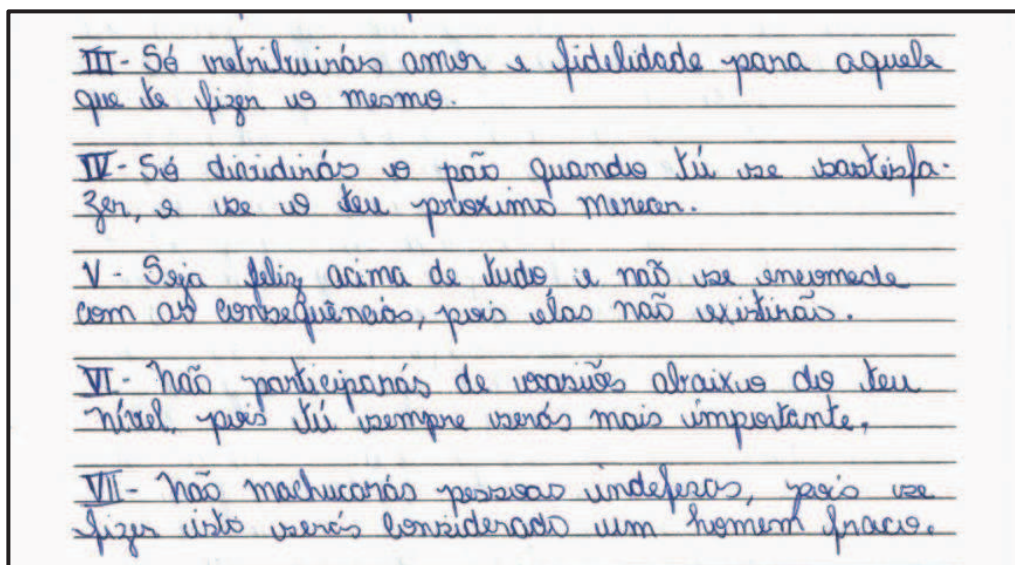 III - Só retribuirás amor e fidelidade para aquele
que te fizer o mesmo.
IV - Só dividirás o pão quando tú se sastisfa-
zer, e se o teu próximo merecer.
V - Seja feliz acima de tudo e não se encomede
com as consequências, pois elas não existirão.
VI - Não participarás de ocasiões abaixo do teu
nível, pois tú sempre serás mais importante.
VII - Não machucarás pessoas indefesas, pois se
fizer isto serás considerado um homem fraco.